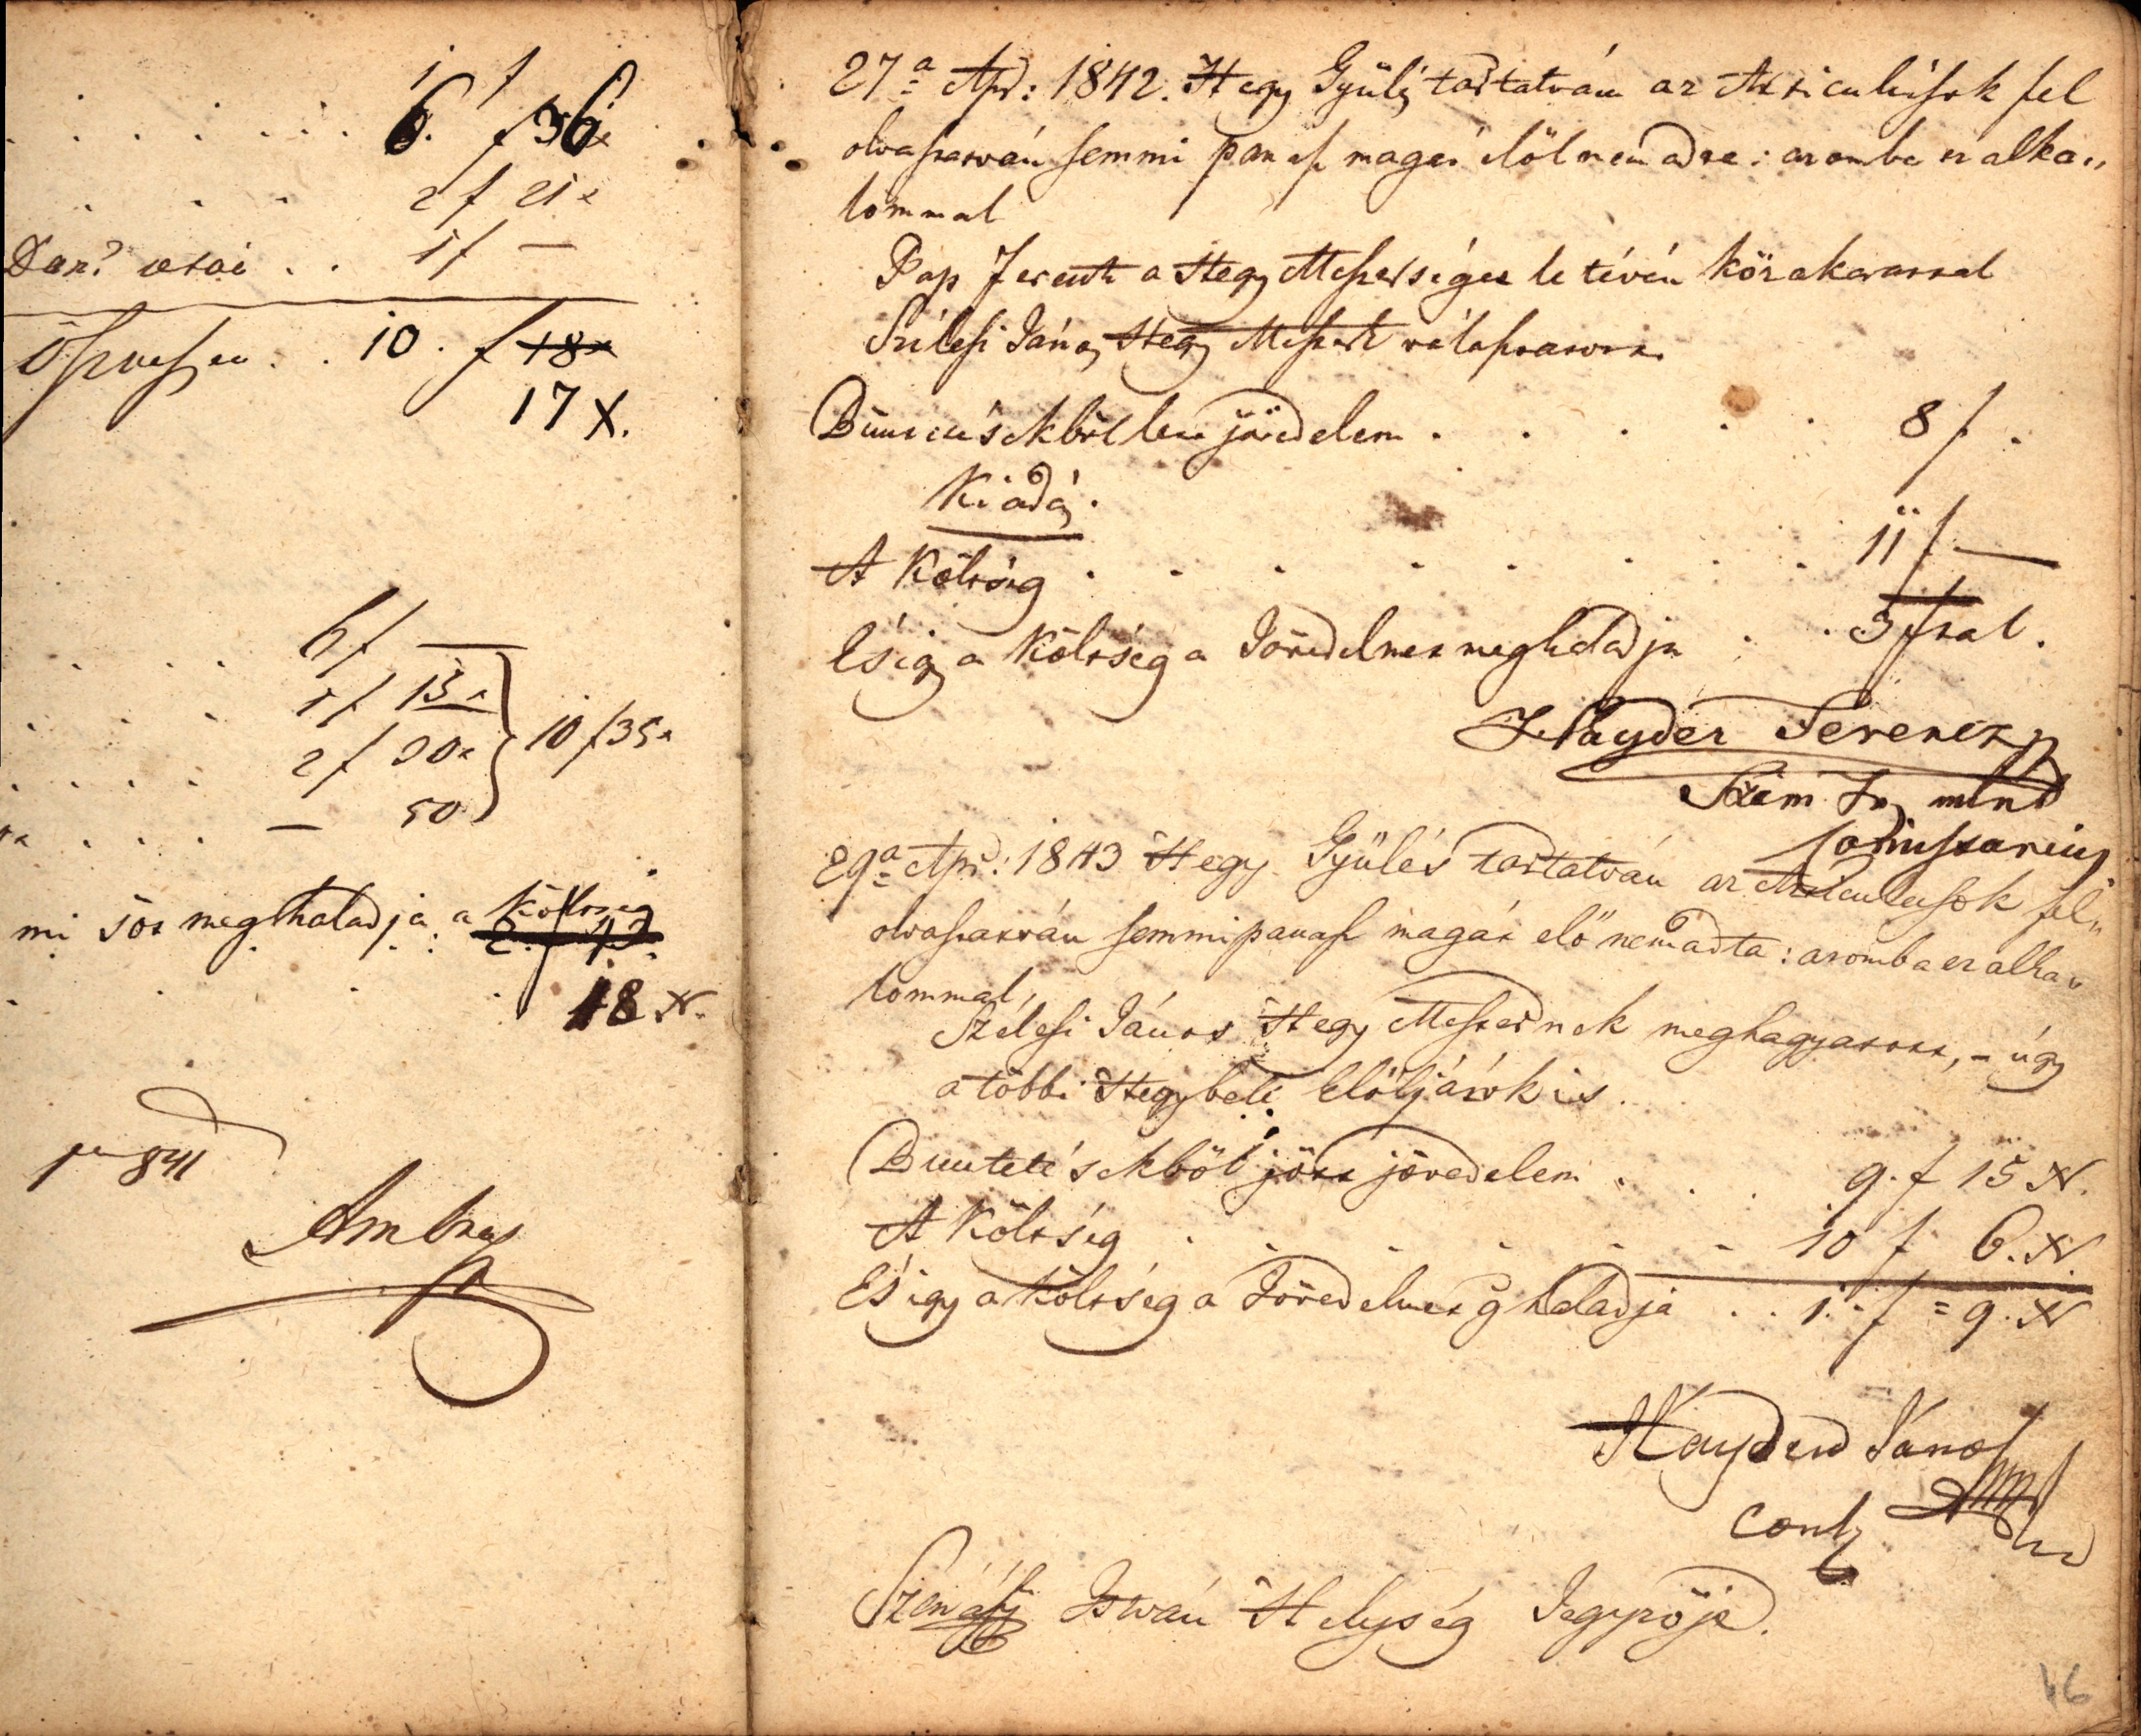 1 f
6. f 36x
2 f 21x
1 f —
öszvessen . . 10 . f 18x
17 X.
6 f —
1 f 15x
2 f 30x } 10 f 35x
— 50
mi sót meghaladja a költség
2. f 17
18 X.
pr 841
Ambrus
27a Apr: 1842. Hegy Gyülés tartatván az Articulusok fel
olvastatván semmi panasz magát elöl nem adta: azomba ez alka„
lommal
Pap Ferentz a Hegy Mesterséget le tévén közakarattal
Szélesi János Hegy Mester választatott.
Büntetésekböl lett jövedelem . . . . . 8 f .
Kiadás.
A Költség . . . . . . . . 11 f —
És igy a Költség a Jövedelmet meghaladja . . 3 fval.
Hayder Ferencz
mint
Comissarius
29a Apr: 1843 Hegy Gyülés tartatván az Articulusok fel„
olvastatván semmi panasz magát elö nem adta: azomba ez alka„
lommal,
Szélesi János Hegy Mesternek meghagyatott, – úgy
a többi Hegybeli Elöljárók is.
Büntetésekböl jött jövedelem . . . 9. f 15 X.
A Költség . . . . . . 10 f 6. X.
És igy a Költség a Jövedelmet meghaladja . . 1. f = 9. X
Hayder János
István Helység Jegyzöje.
46